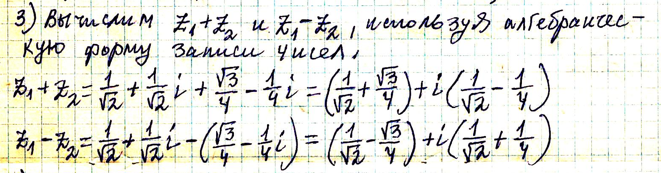 3) Вычислим z₁+z₂ и z₁-z₂, используя алгебраичес-
кую форму записи чисел.
z₁+z₂=1/√2+1/√2 i+√3/4-1/4 i=(1/√2+√3/4)+i(1/√2-1/4)
z₁-z₂=1/√2+1/√2 i-(√3/4-1/4 i)=(1/√2-√3/4)+i(1/√2+1/4)